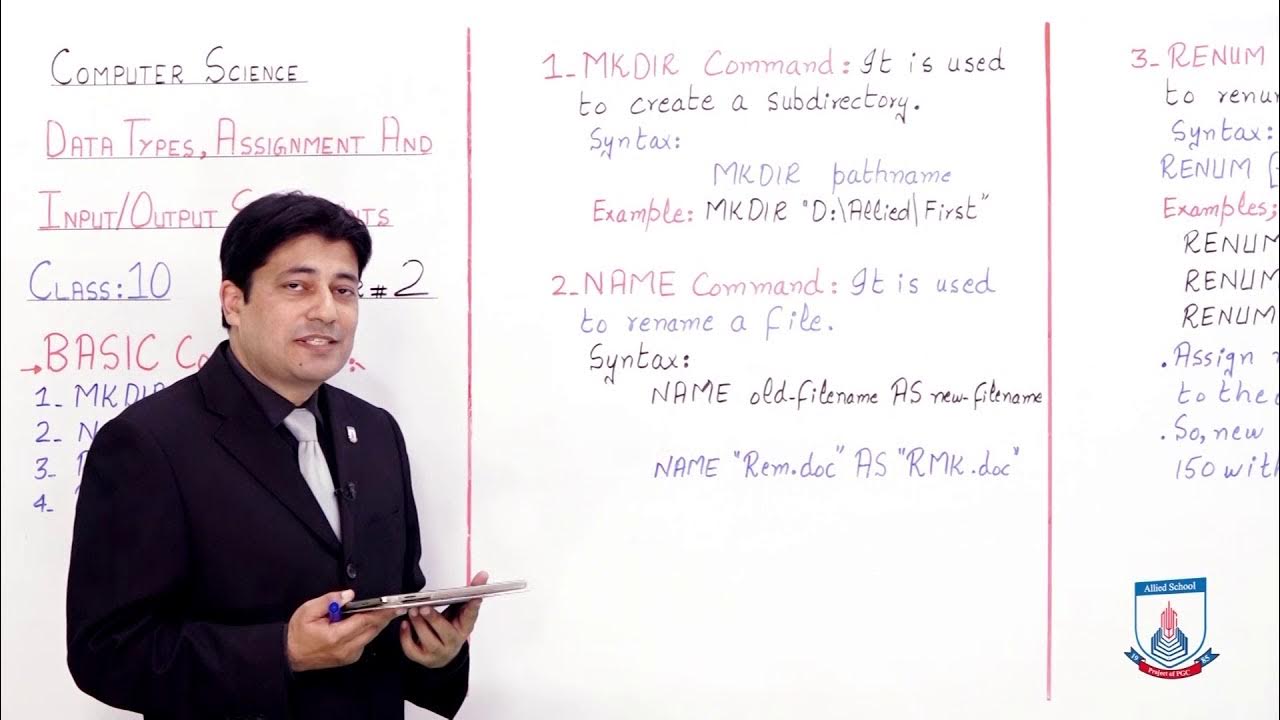 COMPUTER SCIENCE
DATA TYPES, ASSIGNMENT AND
INPUT/OUTPUT
CLASS:10 #2
→BASIC
1_ MKDIR
2_
3_
4_
1_MKDIR Command: It is used
to create a subdirectory.
Syntax:
MKDIR pathname
Example: MKDIR "D:\Allied\First"
2_NAME Command: It is used
to rename a file.
Syntax:
NAME old-filename AS new-filename
NAME "Rem.doc" AS "RMK.doc"
3_RENUM
to
Syntax:
RENUM [
Examples;
RENUM
RENUM
RENUM
.Assign
to the
.So, new
150 with
Allied School
19 85
Project of PGC